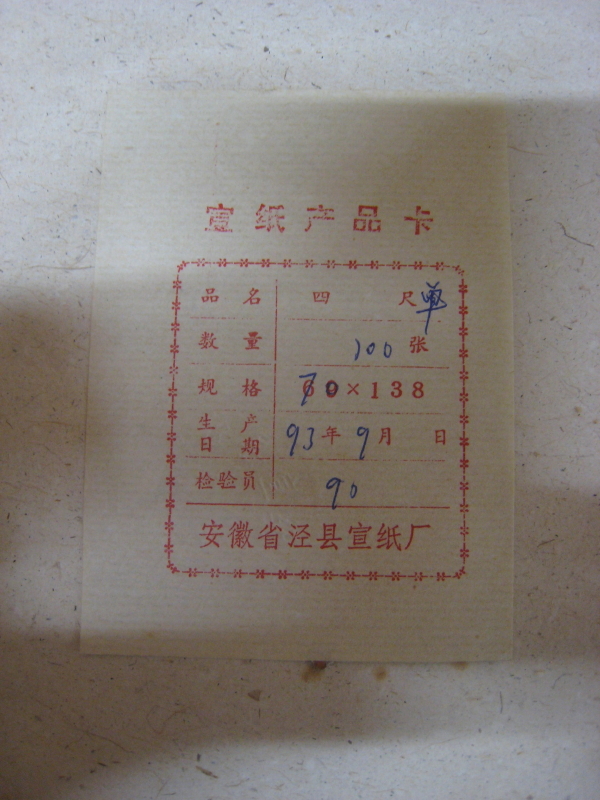 宣纸产品卡
品名 四尺单
数量 100张
规格 70×138
生产日期 93年9月 日
检验员 90
安徽省泾县宣纸厂